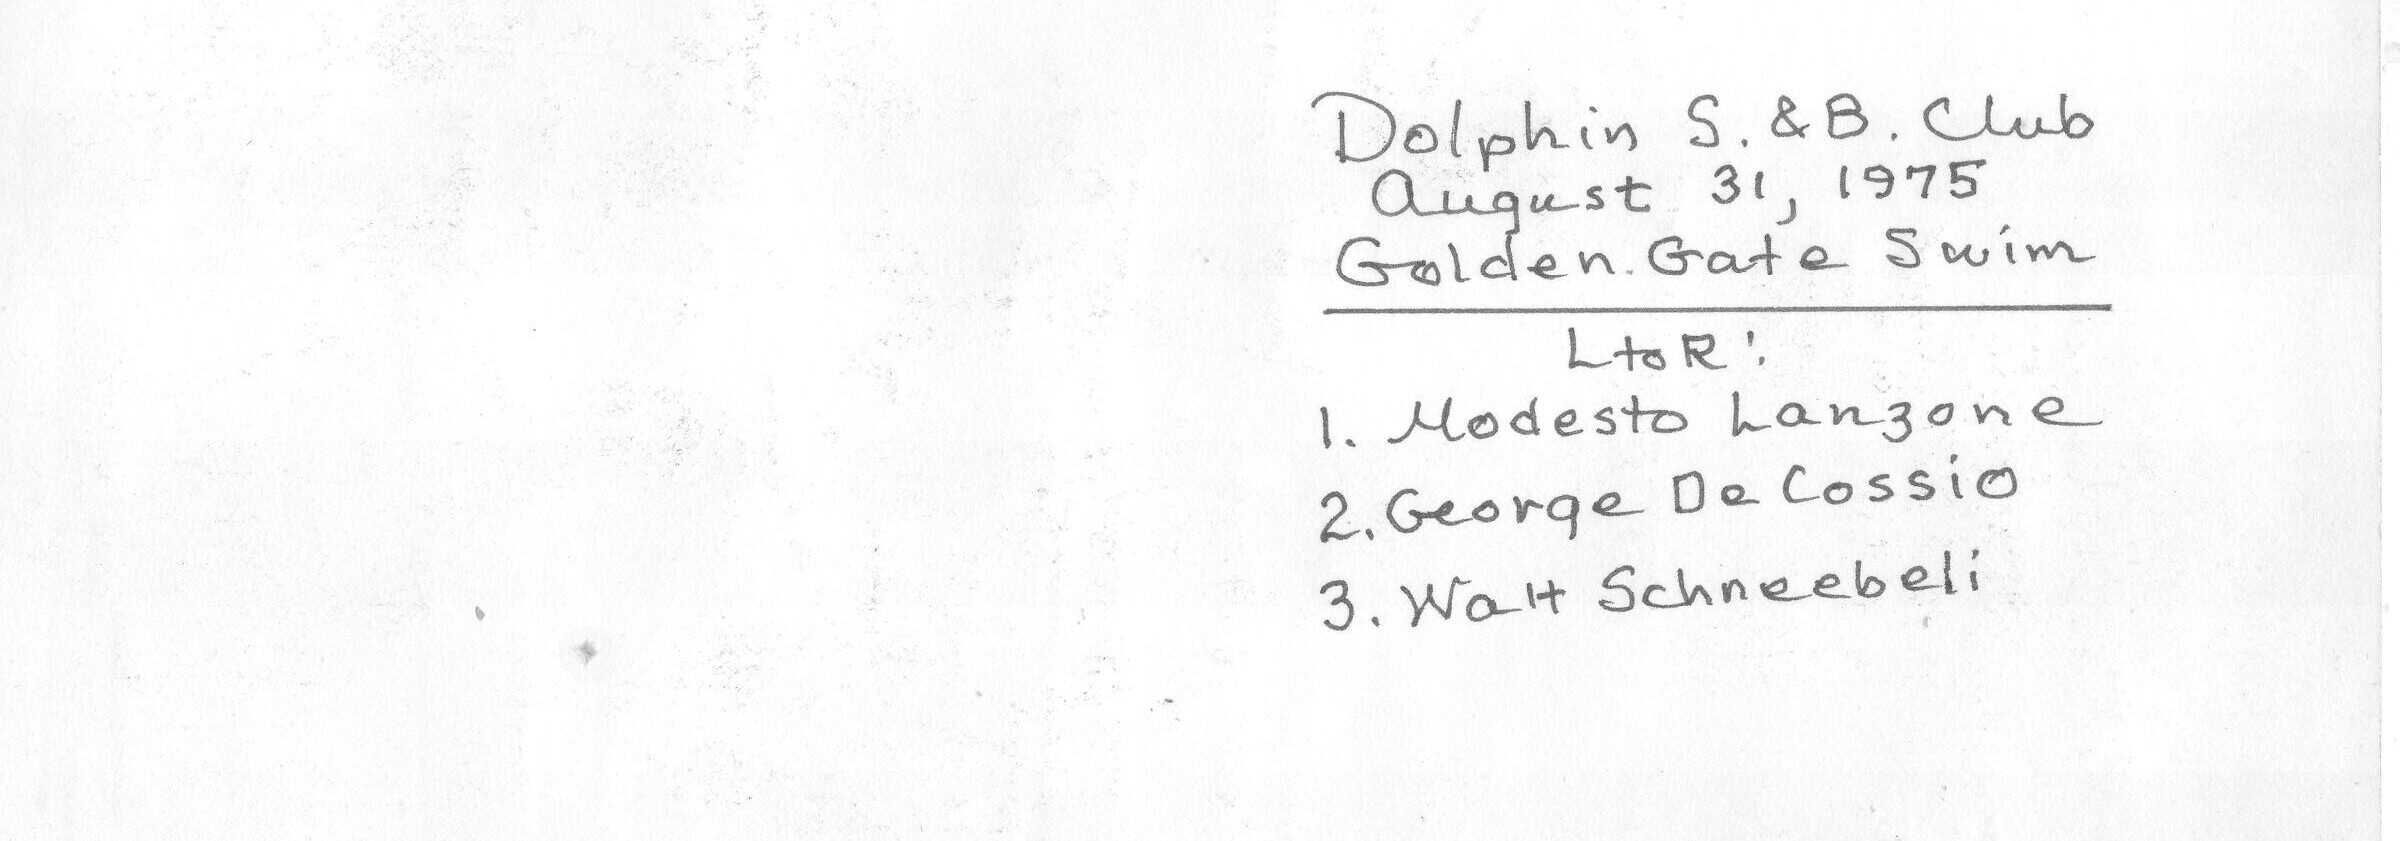 Dolphin S. & B. Club
August 31, 1975
Golden Gate Swim
L to R:
1. Modesto Lanzone
2. George De Cossio
3. Walt Schneebeli